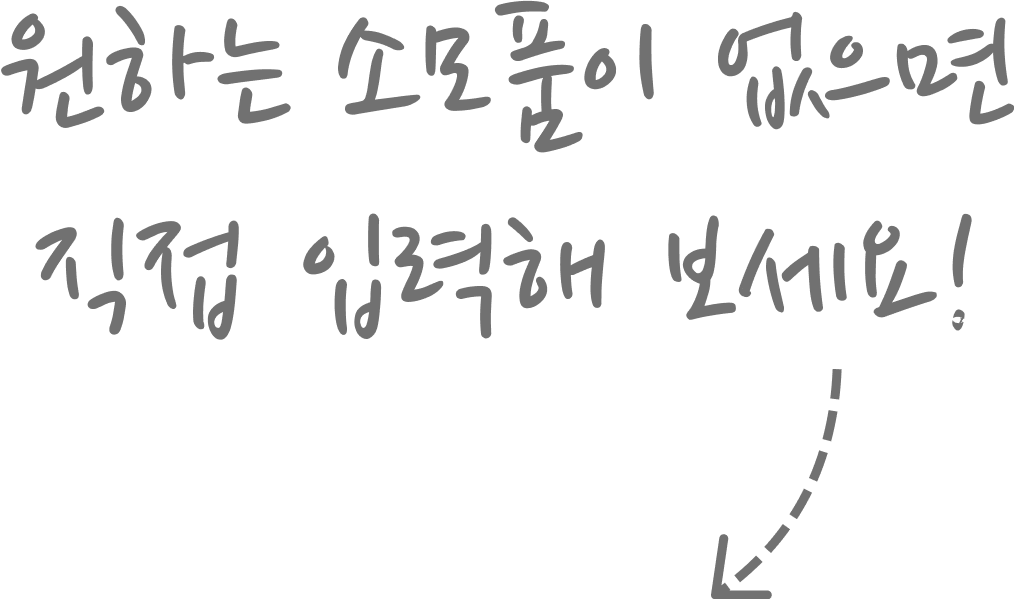 원하는 소모품이 없으면
직접 입력해 보세요!